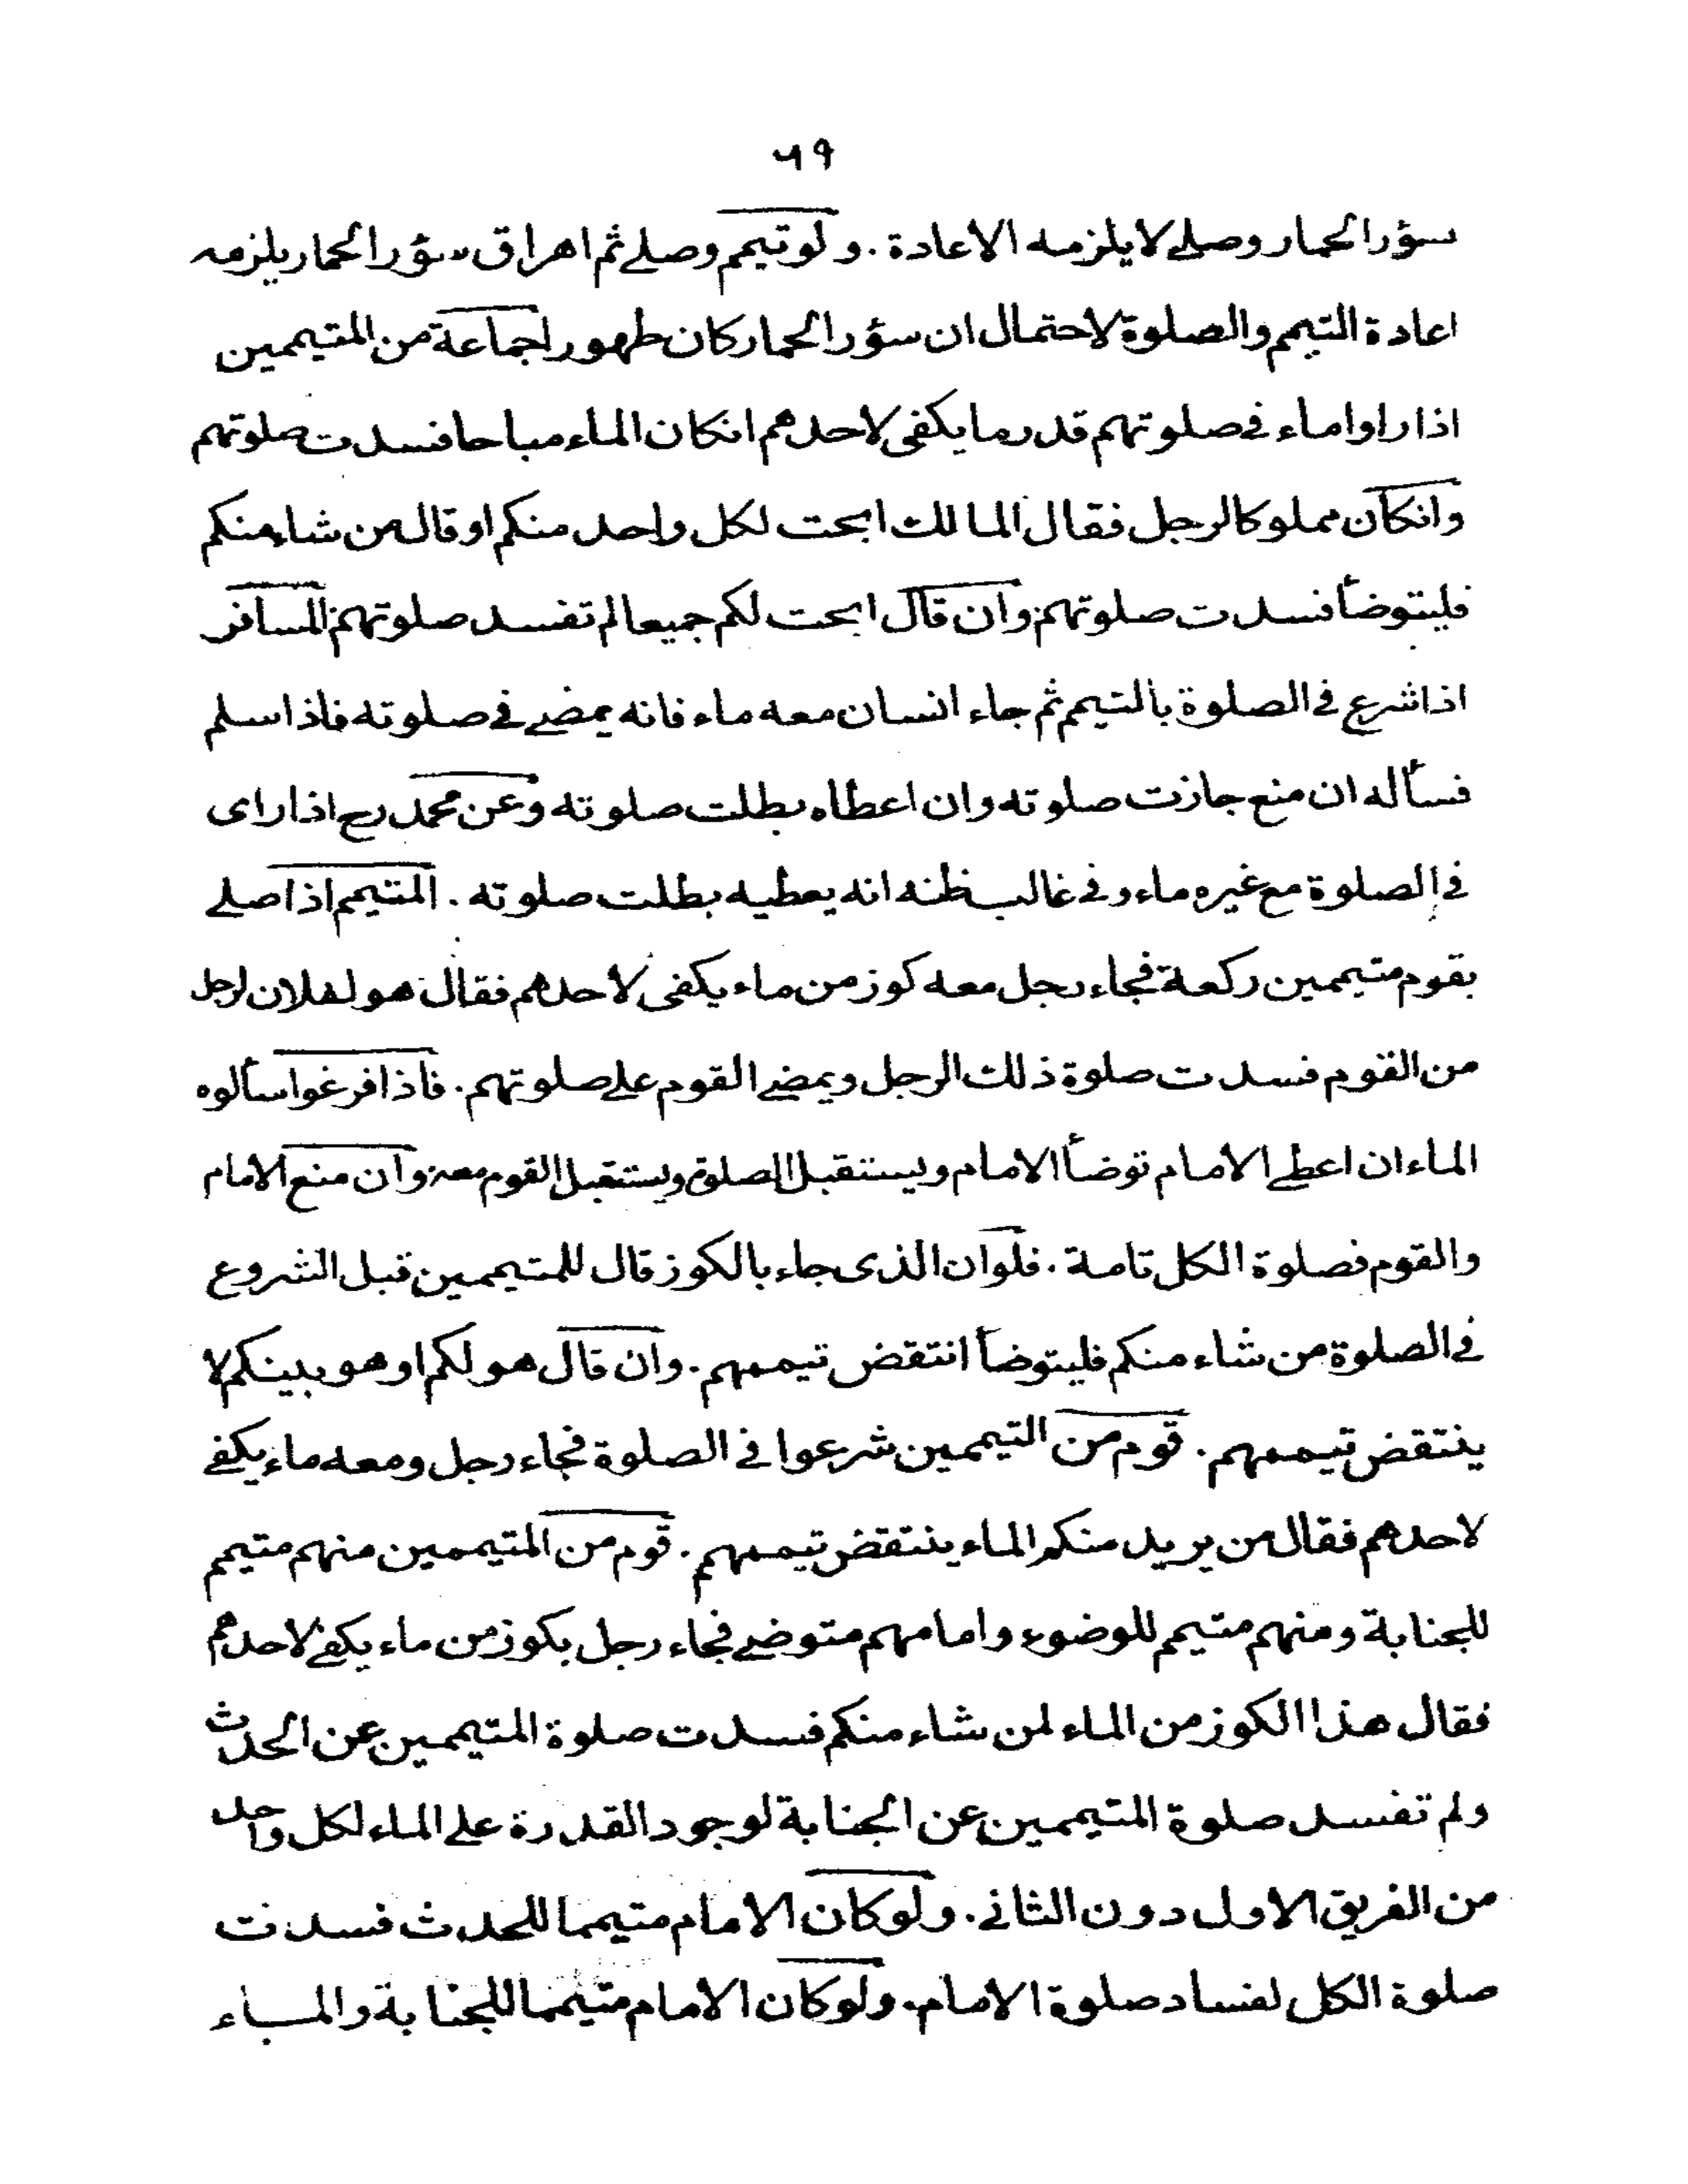 ٦٩
سؤر الحمار وصلے لا يلزمه الاعادة . و لو تيمم وصلے ثم اهراق سؤر الحمار يلزمه
اعادة التيمم والصلوة لاحتمال ان سؤر الحمار كان طهورا جماعة من المتيممين
اذا راوا ماء فے صلوتهم قدر ما يكفى لاحدهم انكان الماء مباحا فسدت صلوتهم
وانكان مملوكا لرجل فقال المالك ابحت لكل واحد منكم او قال من شاء منكم
فليتوضأ فسدت صلوتهم وان قال ابحت لكم جميعا لم تفسد صلوتهم المسافر
اذا شرع فے الصلوة بالتيمم ثم جاء انسان معه ماء فانه يمضے فے صلوته فاذا سلم
فسأله ان منع جازت صلوته وان اعطاه بطلت صلوته وعن محمد رح اذا رای
فے الصلوة مع غيره ماء و فے غالب ظنه انه يعطيه بطلت صلوته . المتيمم اذا صلے
بقوم متيممين ركعة فجاء رجل معه كوز من ماء يكفى لاحدهم فقال هو لفلان لرجل
من القوم فسدت صلوة ذلك الرجل ويمضے القوم علے صلوتهم . فاذا فرغوا سألوه
الماء ان اعطے الامام توضأ الامام ويستقبل الصلوة ويستقبل القوم معه وان منع الامام
والقوم فصلوة الكل تامة . فلو ان الذی جاء بالكوز قال للمتيممين قبل الشروع
فے الصلوة من شاء منكم فليتوضأ انتقض تيممهم . وان قال هو لكم او هو بينكم لا
ينتقض تيممهم . قوم من التيممين شرعوا فے الصلوة فجاء رجل ومعه ماء يكفے
لاحدهم فقال من يريد منكم الماء ينتقض تيممهم . قوم من المتيممين منهم متيمم
للجنابة ومنهم متيمم للوضوء وامامهم متوضے فجاء رجل بكوز من ماء يكفے لاحدهم
فقال هذا الكوز من الماء لمن شاء منكم فسدت صلوة المتيممين عن الحدث
ولم تفسد صلوة المتيممين عن الجنابة لوجود القدرة علے الماء لكل واحد
من الفريق الاول دون الثانے . ولو كان الامام متيمما للحدث فسدت
صلوة الكل لفساد صلوة الامام . ولو كان الامام متيمما للجنابة والماء